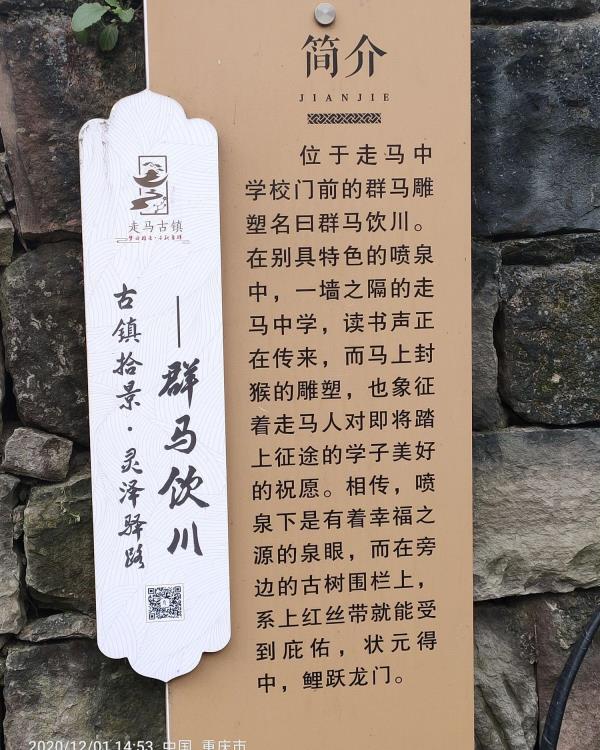 走马古镇
古鎮拾景·灵泽驿路
——群马饮川
简介
JIANJIE
位于走马中
学校门前的群马雕
塑名曰群马饮川。
在别具特色的喷泉
中，一墙之隔的走
马中学，读书声正
在传来，而马上封
猴的雕塑，也象征
着走马人对即将踏
上征途的学子美好
的祝愿。相传，喷
泉下是有着幸福之
源的泉眼，而在旁
边的古树围栏上，
系上红丝带就能受
到庇佑，状元得
中，鲤跃龙门。
2020/12/01 14:53 中国 重庆市